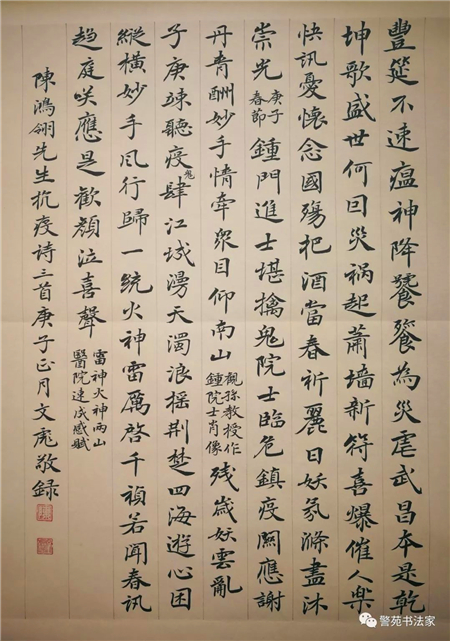 豐筵不速瘟神降饕餮為災虐武昌本是乾
坤歌盛世何曰災祸起蕭墻新符喜爆催人樂
快訊憂懷念國殤把酒當春祈麗日妖氛滌盡沐
崇光庚子春節鍾門進士堪擒鬼院士臨危鎮疫
丹青酬妙手情牽衆目仰南山觀孫教授作鍾院士肖像残歲妖雲亂
子庚竦聽疫鬼肆江城漫天濁浪摇荆楚四海遊心困
縱横妙手風行歸一統火神雷厲啓千禎若聞春訊
趋庭咲應是歡顔泣喜聲雷神火神兩山醫院速成感賦
陳鴻翎先生抗疫诗三首庚子正月文彪敬録
警苑书法家